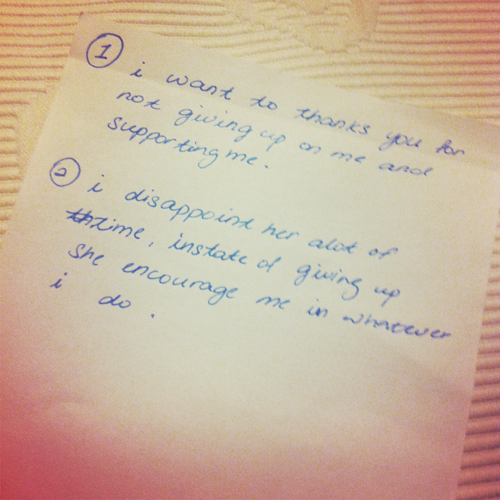 1 i want to thanks you for
not giving up on me and
supporting me.
2 i disappoint her alot of
time, instate of giving up
she encourage me in whatever
i do.